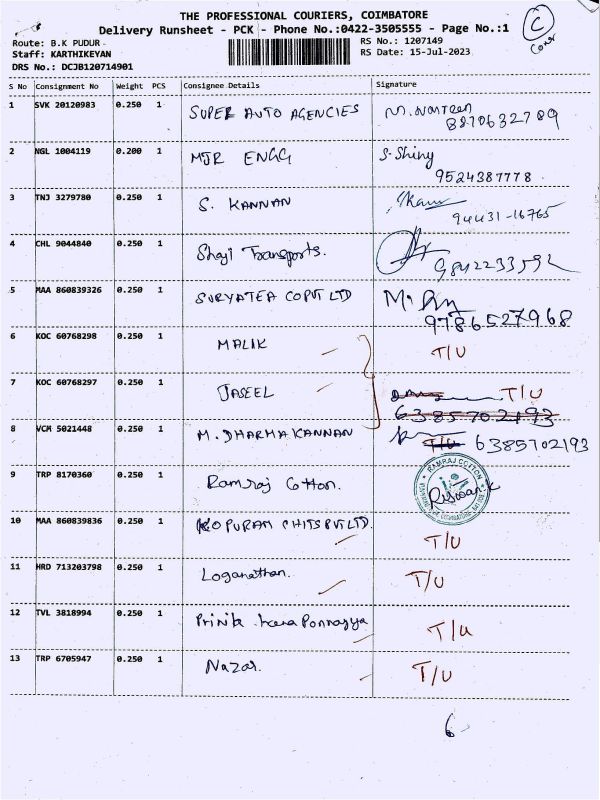 THE PROFESSIONAL COURIERS, COIMBATORE
Delivery Runsheet - PCK - Phone No.:0422-3505555 - Page No.:1
C
Route: B.K PUDUR
Staff: KARTHIKEYAN
DRS No.: DCJB120714901
RS No.: 1207149
RS Date: 15-Jul-2023
S No Consignment No Weight PCS Consignee Details Signature
1 SVK 20120983 0.250 1 SUPER AUTO AGENCIES
2 NGL 1004119 0.200 1 MJR ENGG S. Shiny
9524387778
3 TNJ 3279780 0.250 1 S. KANNAN
94431-16765
4 CHL 9044840 0.250 1 Shaji Transports.
9842233592
5 MAA 860839326 0.250 1
9786527968
6 KOC 60768298 0.250 1 MALIK T/U
7 KOC 60768297 0.250 1 JASEEL T/U
6385702193
8 VCM 5021448 0.250 1 M. DHARMAKANNAN T/U 6385702193
9 TRP 8170360 0.250 1 Ramraj Cotton.
RAMRAJ COTTON
10 MAA 860839836 0.250 1 KOPURAM CHITS PVT LTD. T/U
11 HRD 713203798 0.250 1 Loganathan. T/U
12 TVL 3818994 0.250 1 T/U
13 TRP 6705947 0.250 1 Nazar. T/U
6